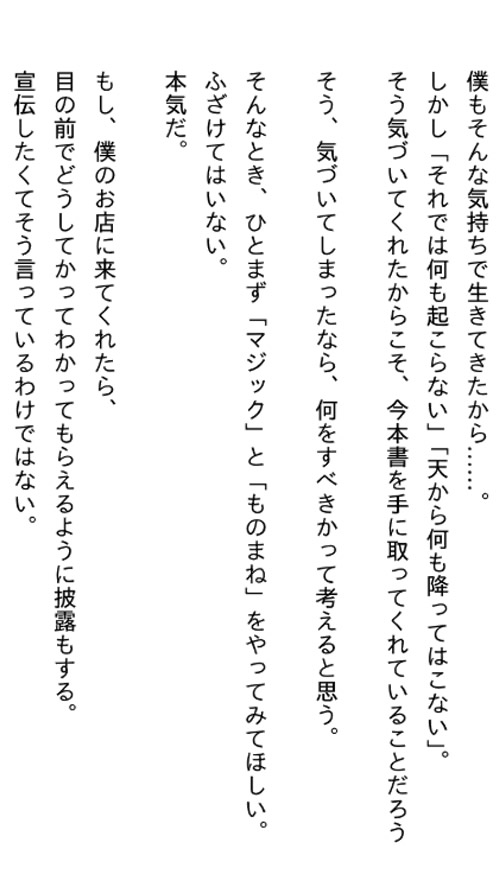 僕もそんな気持ちで生きてきたから……。
しかし「それでは何も起こらない」「天から何も降ってはこない」。
そう気づいてくれたからこそ、今本書を手に取ってくれていることだろう
そう、気づいてしまったなら、何をすべきかって考えると思う。
そんなとき、ひとまず「マジック」と「ものまね」をやってみてほしい。
ふざけてはいない。
本気だ。
もし、僕のお店に来てくれたら、
目の前でどうしてかってわかってもらえるように披露もする。
宣伝したくてそう言っているわけではない。